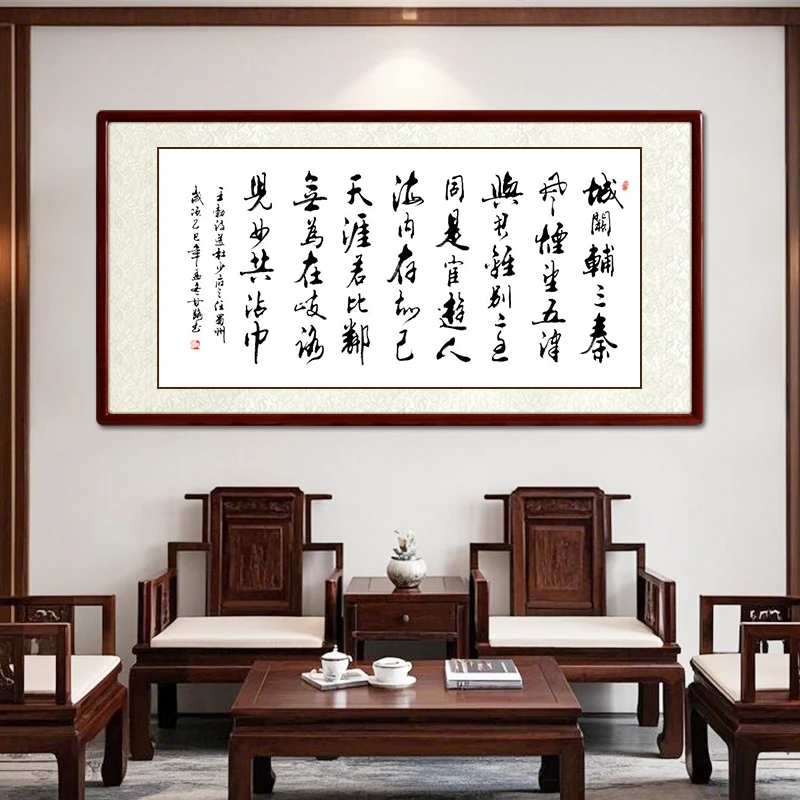 城闕輔三秦
風煙望五津
與君離別意
同是宦遊人
海内存知己
天涯若比鄰
無為在岐路
兒女共沾巾
王勃詩送杜少府之任蜀州
歲次乙巳年